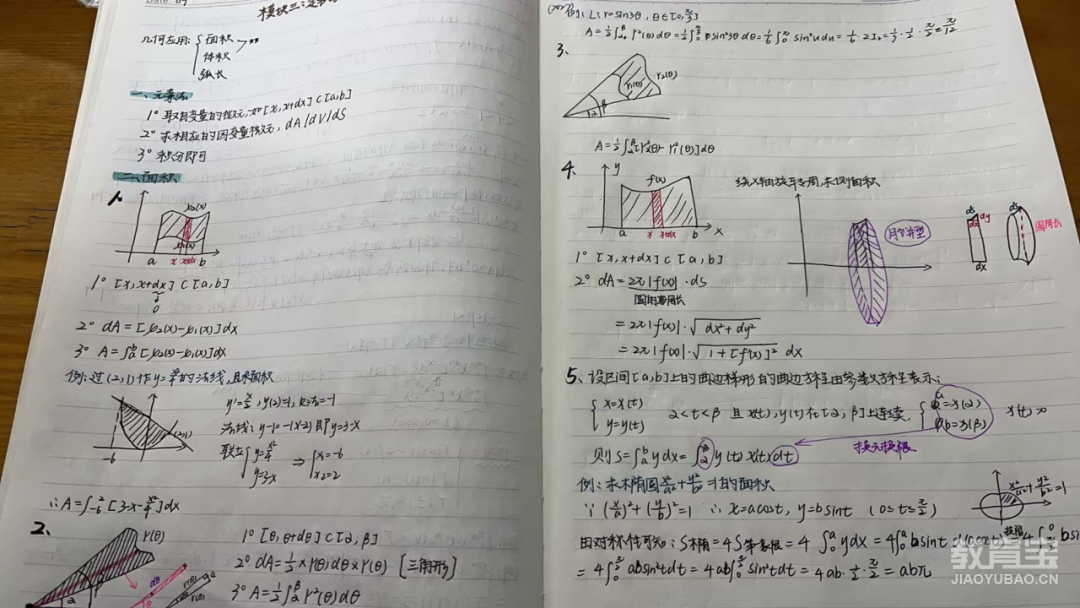 模块三:定
几何应用:
面积
体积
弧长
一、元素法
1° 取自变量的微元,如[x, x+dx]⊂[a,b]
2° 求相应的因变量微元, dA/dV/dS
3° 积分即可
二、面积
1.
φ₂(x)
φ₁(x)
a x x+dx b
1° [x, x+dx]⊂[a,b]
0
2° dA=[φ₂(x)-φ₁(x)]dx
3° A=∫ₐᵇ[φ₂(x)-φ₁(x)]dx
例:过(2,1)作y=x²/4的法线,且求面积
y'=x/2, y'(2)=1, k法=-1
法线: y-1=-1(x-2)即y=3-x
(2,1)
-6
联立
y=x²/4
y=3-x
⇒
x₁=-6
x₂=2
∴A=∫₋₆²[3-x-x²/4]dx
2.
r(θ)
dθ
θ
α
r(θ)
1° [θ,θ+dθ]⊂[α,β]
2° dA=½×r(θ)dθ×r(θ) [三角形]
3° A=½∫_α^β r²(θ)dθ
例: L: r=sin3θ, θ∈[0,π/3]
A=½∫_α^β r²(θ)dθ=½∫₀^{π/3} sin²3θdθ=1/6∫₀^π sin²udu=1/6·2I₂=1/3·1/2·π/2=π/12
3.
r₁(θ)
r₂(θ)
α β
A=½∫_α^β[r₂²(θ)-r₁²(θ)]dθ
4.
y
f(x)
a x x+dx b x
绕x轴旋转一周,求侧面积
月饼型
ds
dy
dx
dx
ds
圆周长
1° [x, x+dx]⊂[a,b]
2° dA=2π|f(x)|·ds
圆的周长
=2π|f(x)|·√(dx²+dy²)
=2π|f(x)|·√(1+[f'(x)]²) dx
5、设区间[a,b]上的曲边梯形的曲边方程由参数方程表示:
x=x(t)
y=y(t)
α<t<β 且x(t),y(t)在[α,β]上连续,
a=x(α)
b=x(β)
则S=∫ₐᵇydx=∫_α^β y(t)x'(t)dt
换元换限
例:求椭圆x²/a²+y²/b²=1的面积
∵(x/a)²+(y/b)²=1 ∴x=acost, y=bsint (0≤t≤π/2)
x²/a²+y²/b²=1
由对称性可知: S椭=4S第一象限=4∫₀ᵃydx=4∫₀ᵃbsint
=4∫₀^{π/2}absin²tdt=4ab∫₀^{π/2}sin²tdt=4ab·1/2·π/2=abπ
教育宝
JIAOYUBAO.CN